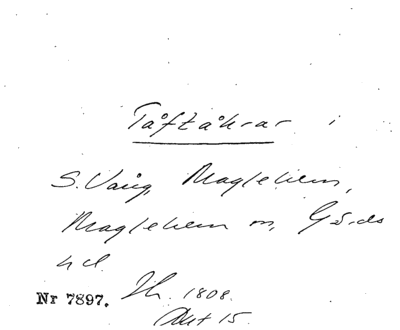 Tåftåkrar i
S. Vång, Maglehem,
Maglehem sn, Gärds
hd.
Nr 7897. Th. 1808.
Akt 15.